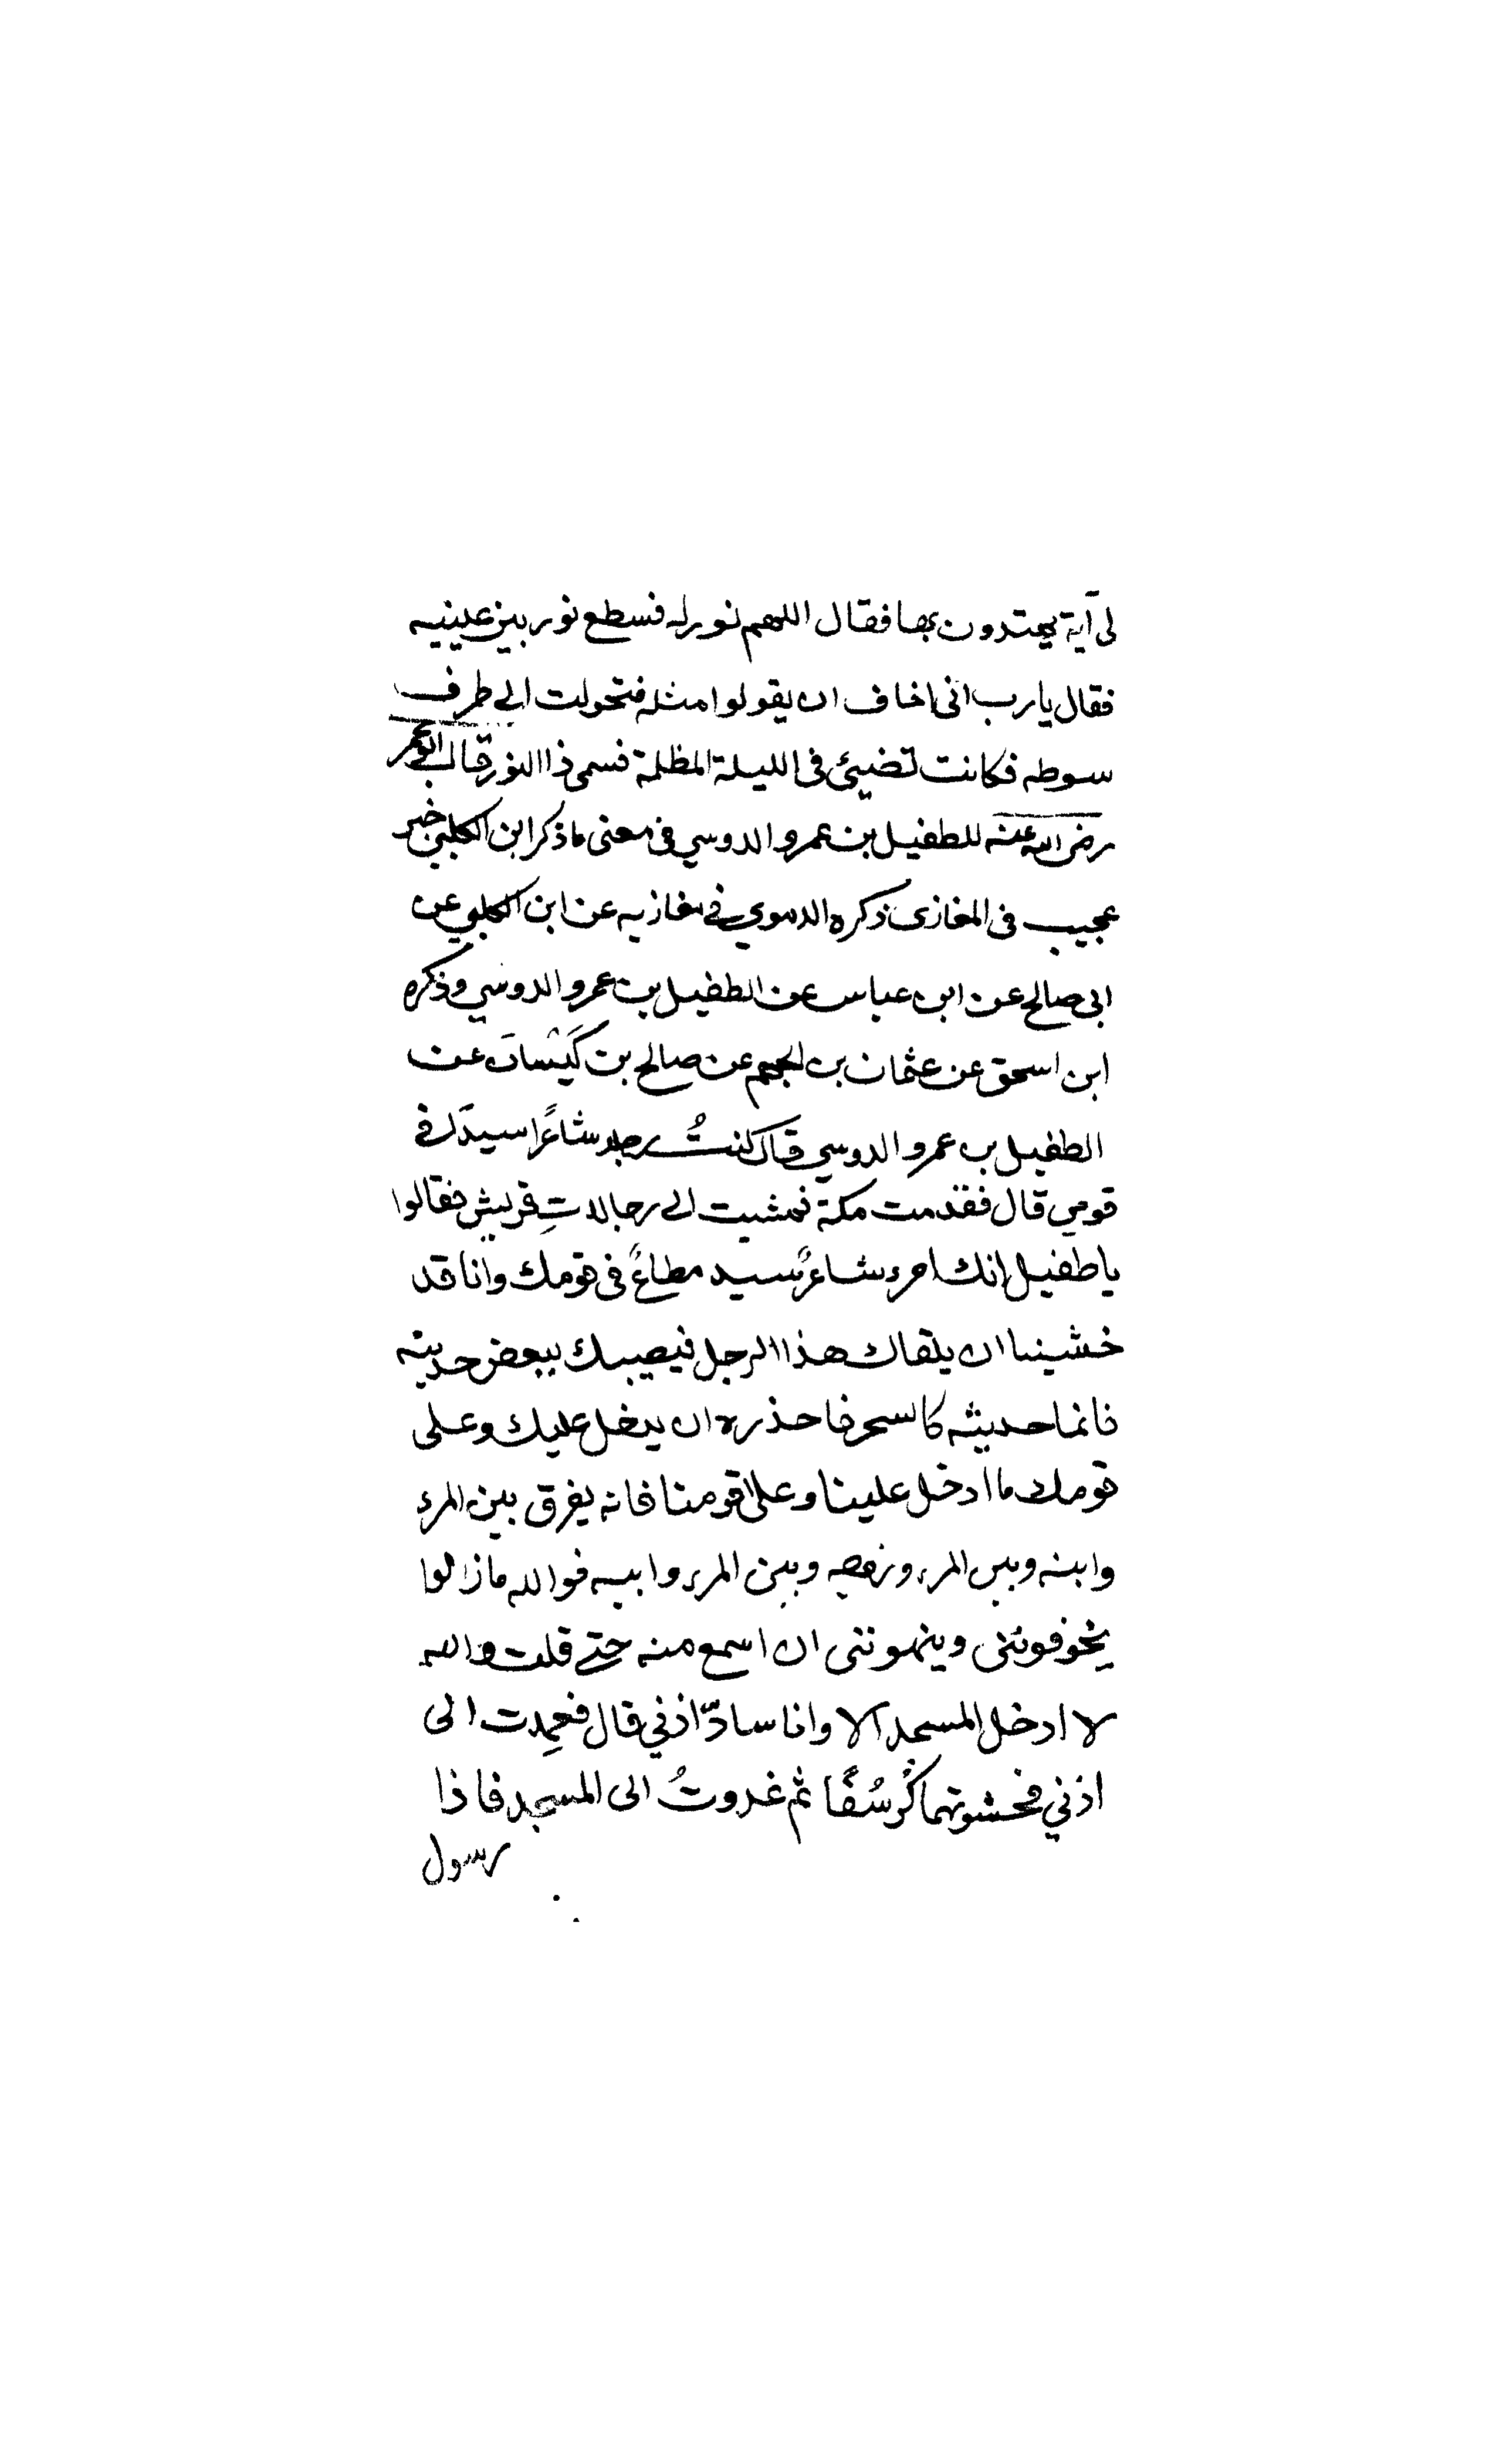 لى آية يهتدون بها فقال اللهم نور له فسطع نور بين عينيه
فقال يا رب انى اخاف ان يقولوا مثلة فتحولت الى طرف
سوطه فكانت تضيئ فى الليلة المظلمة فسمى ذا النور قال ابو عمر
رضى الله عنه للطفيل بن عمرو الدوسي فى معنى ما ذكر ابن الكلبي خبر
عجيب فى المغازى ذكره الاموي فى مغازيه عن ابن الكلبي عن
ابى صالح عن ابن عباس عن الطفيل بن عمرو الدوسي وذكره
ابن اسحق عن عثمان بن الجهم عن صالح بن كَيْسان عن
الطفيل بن عمرو الدوسي قال كنتُ رجلا شاعرًا سيدًا فى
قومي قال فقدمت مكة فمشيت الى رجالاتِ قريش فقالوا
يا طفيل إنك امرء شاعرٌ سيد مطاعٌ فى قومك وانا قد
خشينا ان يلقاك هذا الرجل فيصيبك ببعض حديثه
فانما حديثه كالسحر فاحذره ان يدخل عليك وعلى
قومك ما ادخل علينا وعلى قومنا فانه يفرق بين المرء
وابنه وبين المرء وزوجه وبين المرء وابيه فوالله ما زالوا
يخوفوننى وينهوننى ان اسمع منه حتى قلت والله
لا ادخل المسجد الا وانا سادّ اذني قال فعمِدت الى
اذني فحشوتهما كُرْسُفًا ثم غدوتُ الى المسجد فاذا
رسول